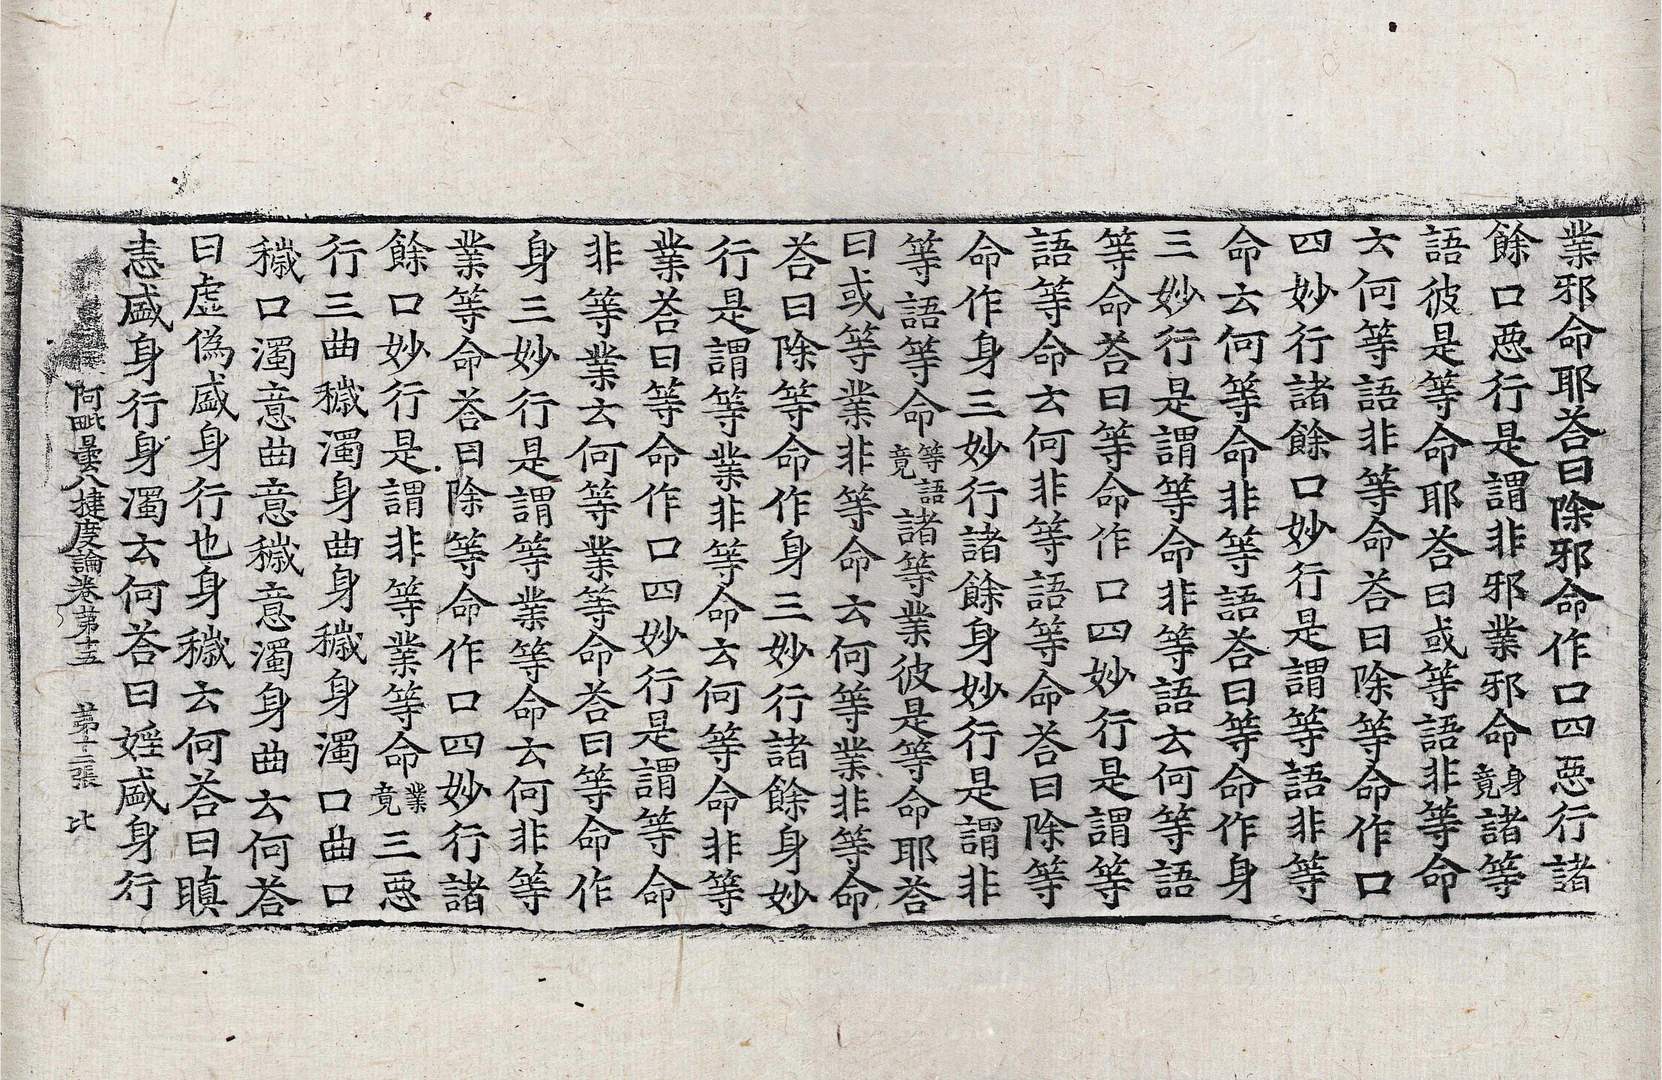 業邪命耶荅曰除邪命作口四惡行諸
餘口惡行是謂非邪業邪命身竟諸等
語彼是等命耶荅曰或等語非等命
云何等語非等命荅曰除等命作口
四妙行諸餘口妙行是謂等語非等
命云何等命非等語荅曰等命作身
三妙行是謂等命非等語云何等語
等命荅曰等命作口四妙行是謂等
語等命云何非等語等命荅曰除等
命作身三妙行諸餘身妙行是謂非
等語等命等語竟諸等業彼是等命耶荅
曰或等業非等命云何等業非等命
荅曰除等命作身三妙行諸餘身妙
行是謂等業非等命云何等命非等
業荅曰等命作口四妙行是謂等命
非等業云何等業等命荅曰等命作
身三妙行是謂等業等命云何非等
業等命荅曰除等命作口四妙行諸
餘口妙行是謂非等業等命業竟三惡
行三曲穢濁身曲身穢身濁口曲口
穢口濁意曲意穢意濁身曲云何荅
曰虛偽盛身行也身穢云何荅曰瞋
恚盛身行身濁云何荅曰婬盛身行
阿毗曇八揵度論卷第十五　第十二張　比